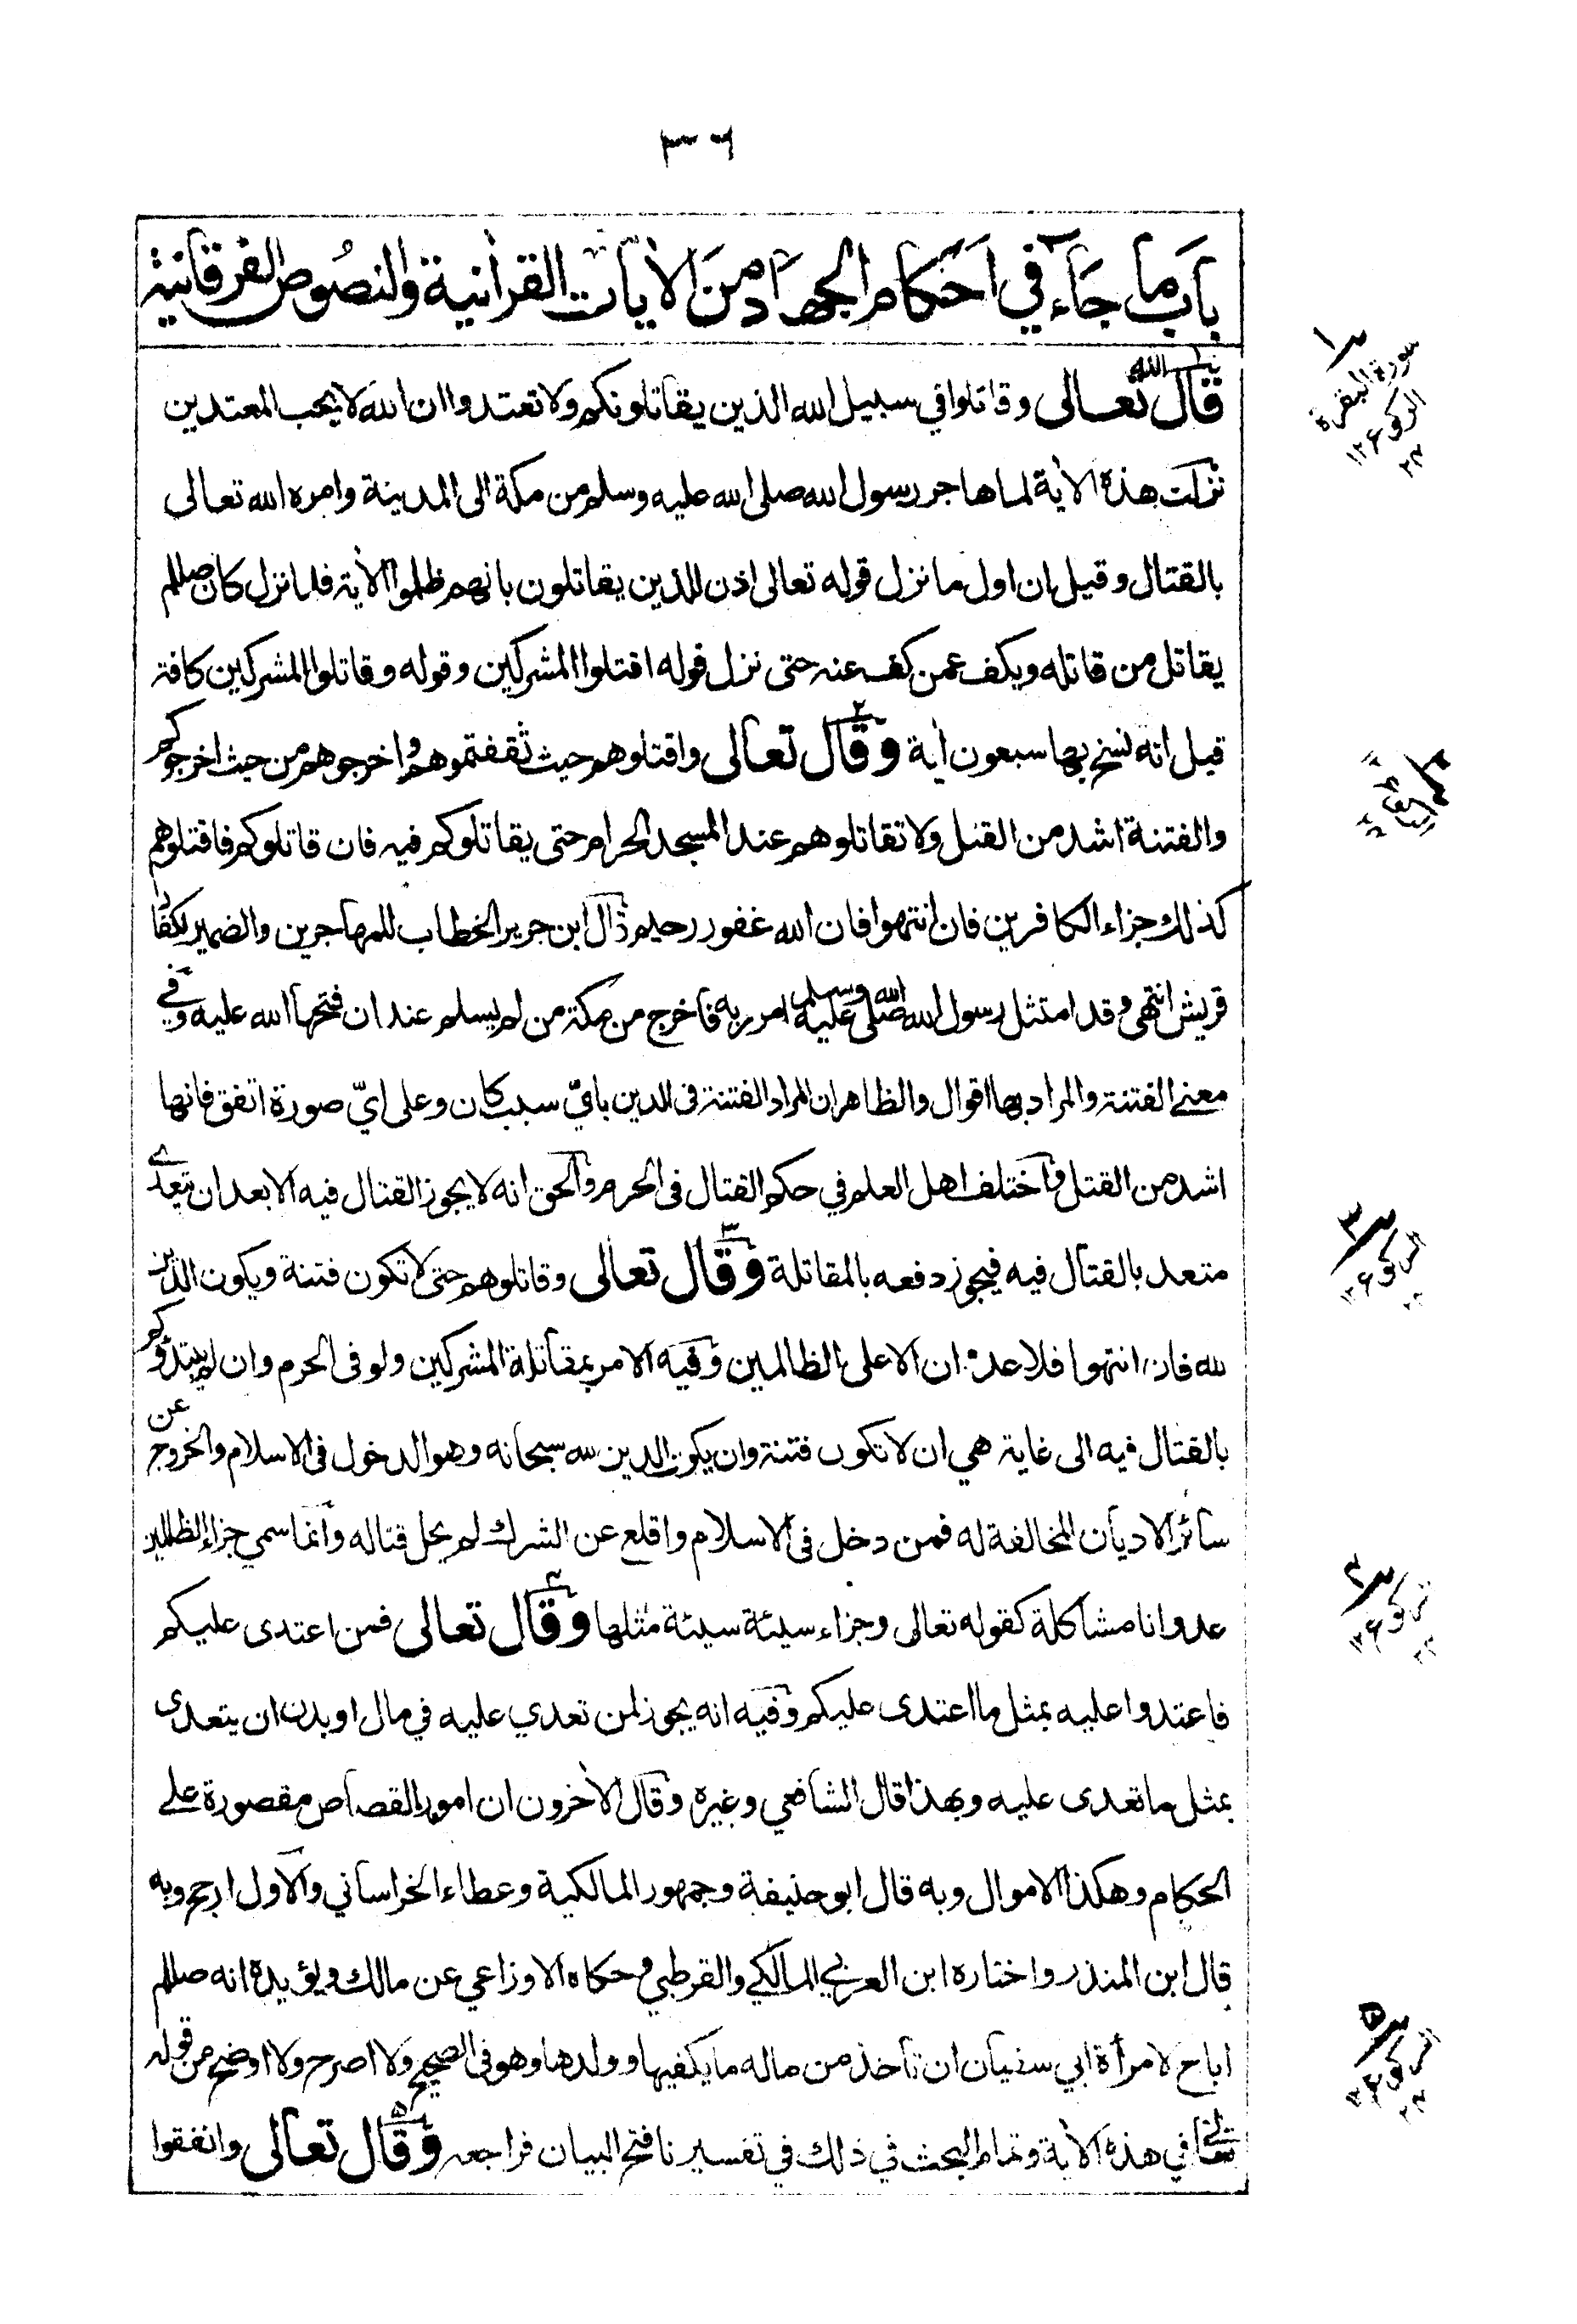 ٣٦
باب ما جآء في احكام الجهاد من الأيات القرأنية والنصوص الفرقانية
قال الله تعالى وقاتلوا في سبيل الله الذين يقاتلونكم ولا تعتدوا ان الله لا يحب المعتدين
نزلت هذه الأية لما هاجر رسول الله صلى الله عليه وسلم من مكة الى المدينة وامره الله تعالى
بالقتال وقيل ان اول ما نزل قوله تعالى اذن للذين يقاتلون بانهم ظلموا الأية فلما نزل كان صللم
يقاتل من قاتله ويكف عمن كف عنه حتى نزل قوله اقتلوا المشركين وقوله وقاتلوا المشركين كافة
قيل انه نسخ بها سبعون أية وقال تعالى واقتلوهم حيث ثقفتموهم واخرجوهم من حيث اخرجوكم
والفتنة اشد من القتل ولا تقاتلوهم عند المسجد الحرام حتى يقاتلوكم فيه فان قاتلوكم فاقتلوهم
كذلك جزاء الكافرين فان انتهوا فان الله غفور رحيم قال ابن جرير الخطاب للمهاجرين والضمير لكفار
قريش انتهى وقد امتثل رسول الله صلى الله عليه وسلم امر ربه فاخرج من مكة من لم يسلم عند ان فتحها الله عليه وفي
معنے الفتنة والمراد بها اقوال والظاهر ان المراد الفتنة فى الدين باىّ سبب كان وعلى ايّ صورة اتفق فانها
اشد من القتل واختلف اهل العلم في حكم القتال فى الحرم والحق انه لا يجوز القتال فيه الا بعد ان يتعدے
متعد بالقتال فيه فيجوز دفعه بالمقاتلة وقال تعالى وقاتلوهم حتى لا تكون فتنة ويكون الدين
لله فان انتهوا فلا عدوان الا على الظالمين وفيه الامر بمقاتلة المشركين ولو فى الحرم وان لم يبتدؤكم
بالقتال فيه الى غاية هي ان لا تكون فتنة وان يكون الدين لله سبحانه وهو الدخول فى الاسلام والخروج عن
سائر الاديان المخالفة له فمن دخل فى الاسلام واقلع عن الشرك لم يحل قتاله وانما سمي جزاء الظالمين
عدوانا مشاكلة كقوله تعالى وجزاء سيئة سيئة مثلها وقال تعالى فمن اعتدى عليكم
فاعتدوا عليه بمثل ما اعتدى عليكم وفيه انه يجوز لمن تعدي عليه في مال او بدن ان يتعدى
بمثل ما تعدى عليه وبهذا قال الشافعي وغيره وقال الأخرون ان امور القصاص مقصورة علے
الحكام وهكذا الاموال وبه قال ابو حنيفة وجمهور المالكية وعطاء الخراساني والاول ارجح وبه
قال ابن المنذر واختاره ابن العربي المالكي والقرطبي وحكاه الاوزاعي عن مالك ويؤيده انه صللم
اباح لامرأة ابي سفيان ان تأخذ من ماله ما يكفيها وولدها وهو فى الصحيح ولا اصرح ولا اوضح من قوله
تعالى في هذه الأية وتمام البحث في ذلك في تفسيرنا فتح البيان فراجعه وقال تعالى وانفقوا
سورة البقرة
الركوع
الركوع
الركوع